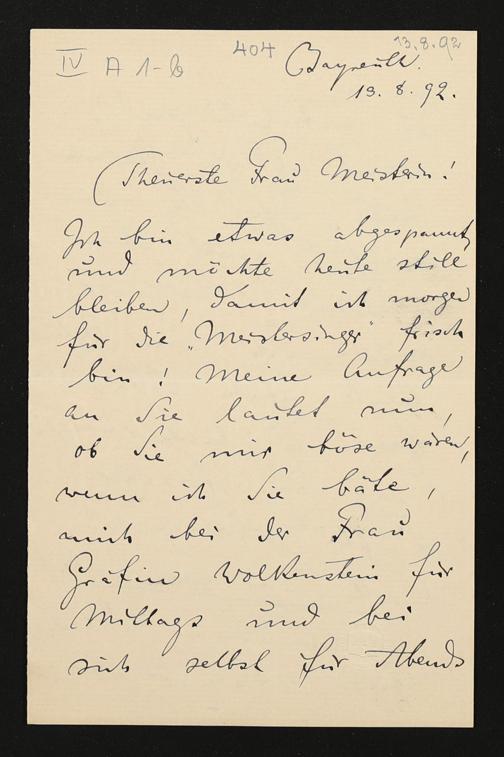 IV A 1-b
404
13.8.92
Bayreuth.
13. 8. 92.
Theuerste Frau Meisterin!
Ich bin etwas abgespannt,
und möchte heute still
bleiben, damit ich morgen
für die „Meistersinger" frisch
bin! Meine Anfrage
an Sie lautet nun,
ob Sie mir böse wären,
wenn ich Sie bäte,
mich bei der Frau
Gräfin Wolkenstein für
Mittags und bei
sich selbst für Abends